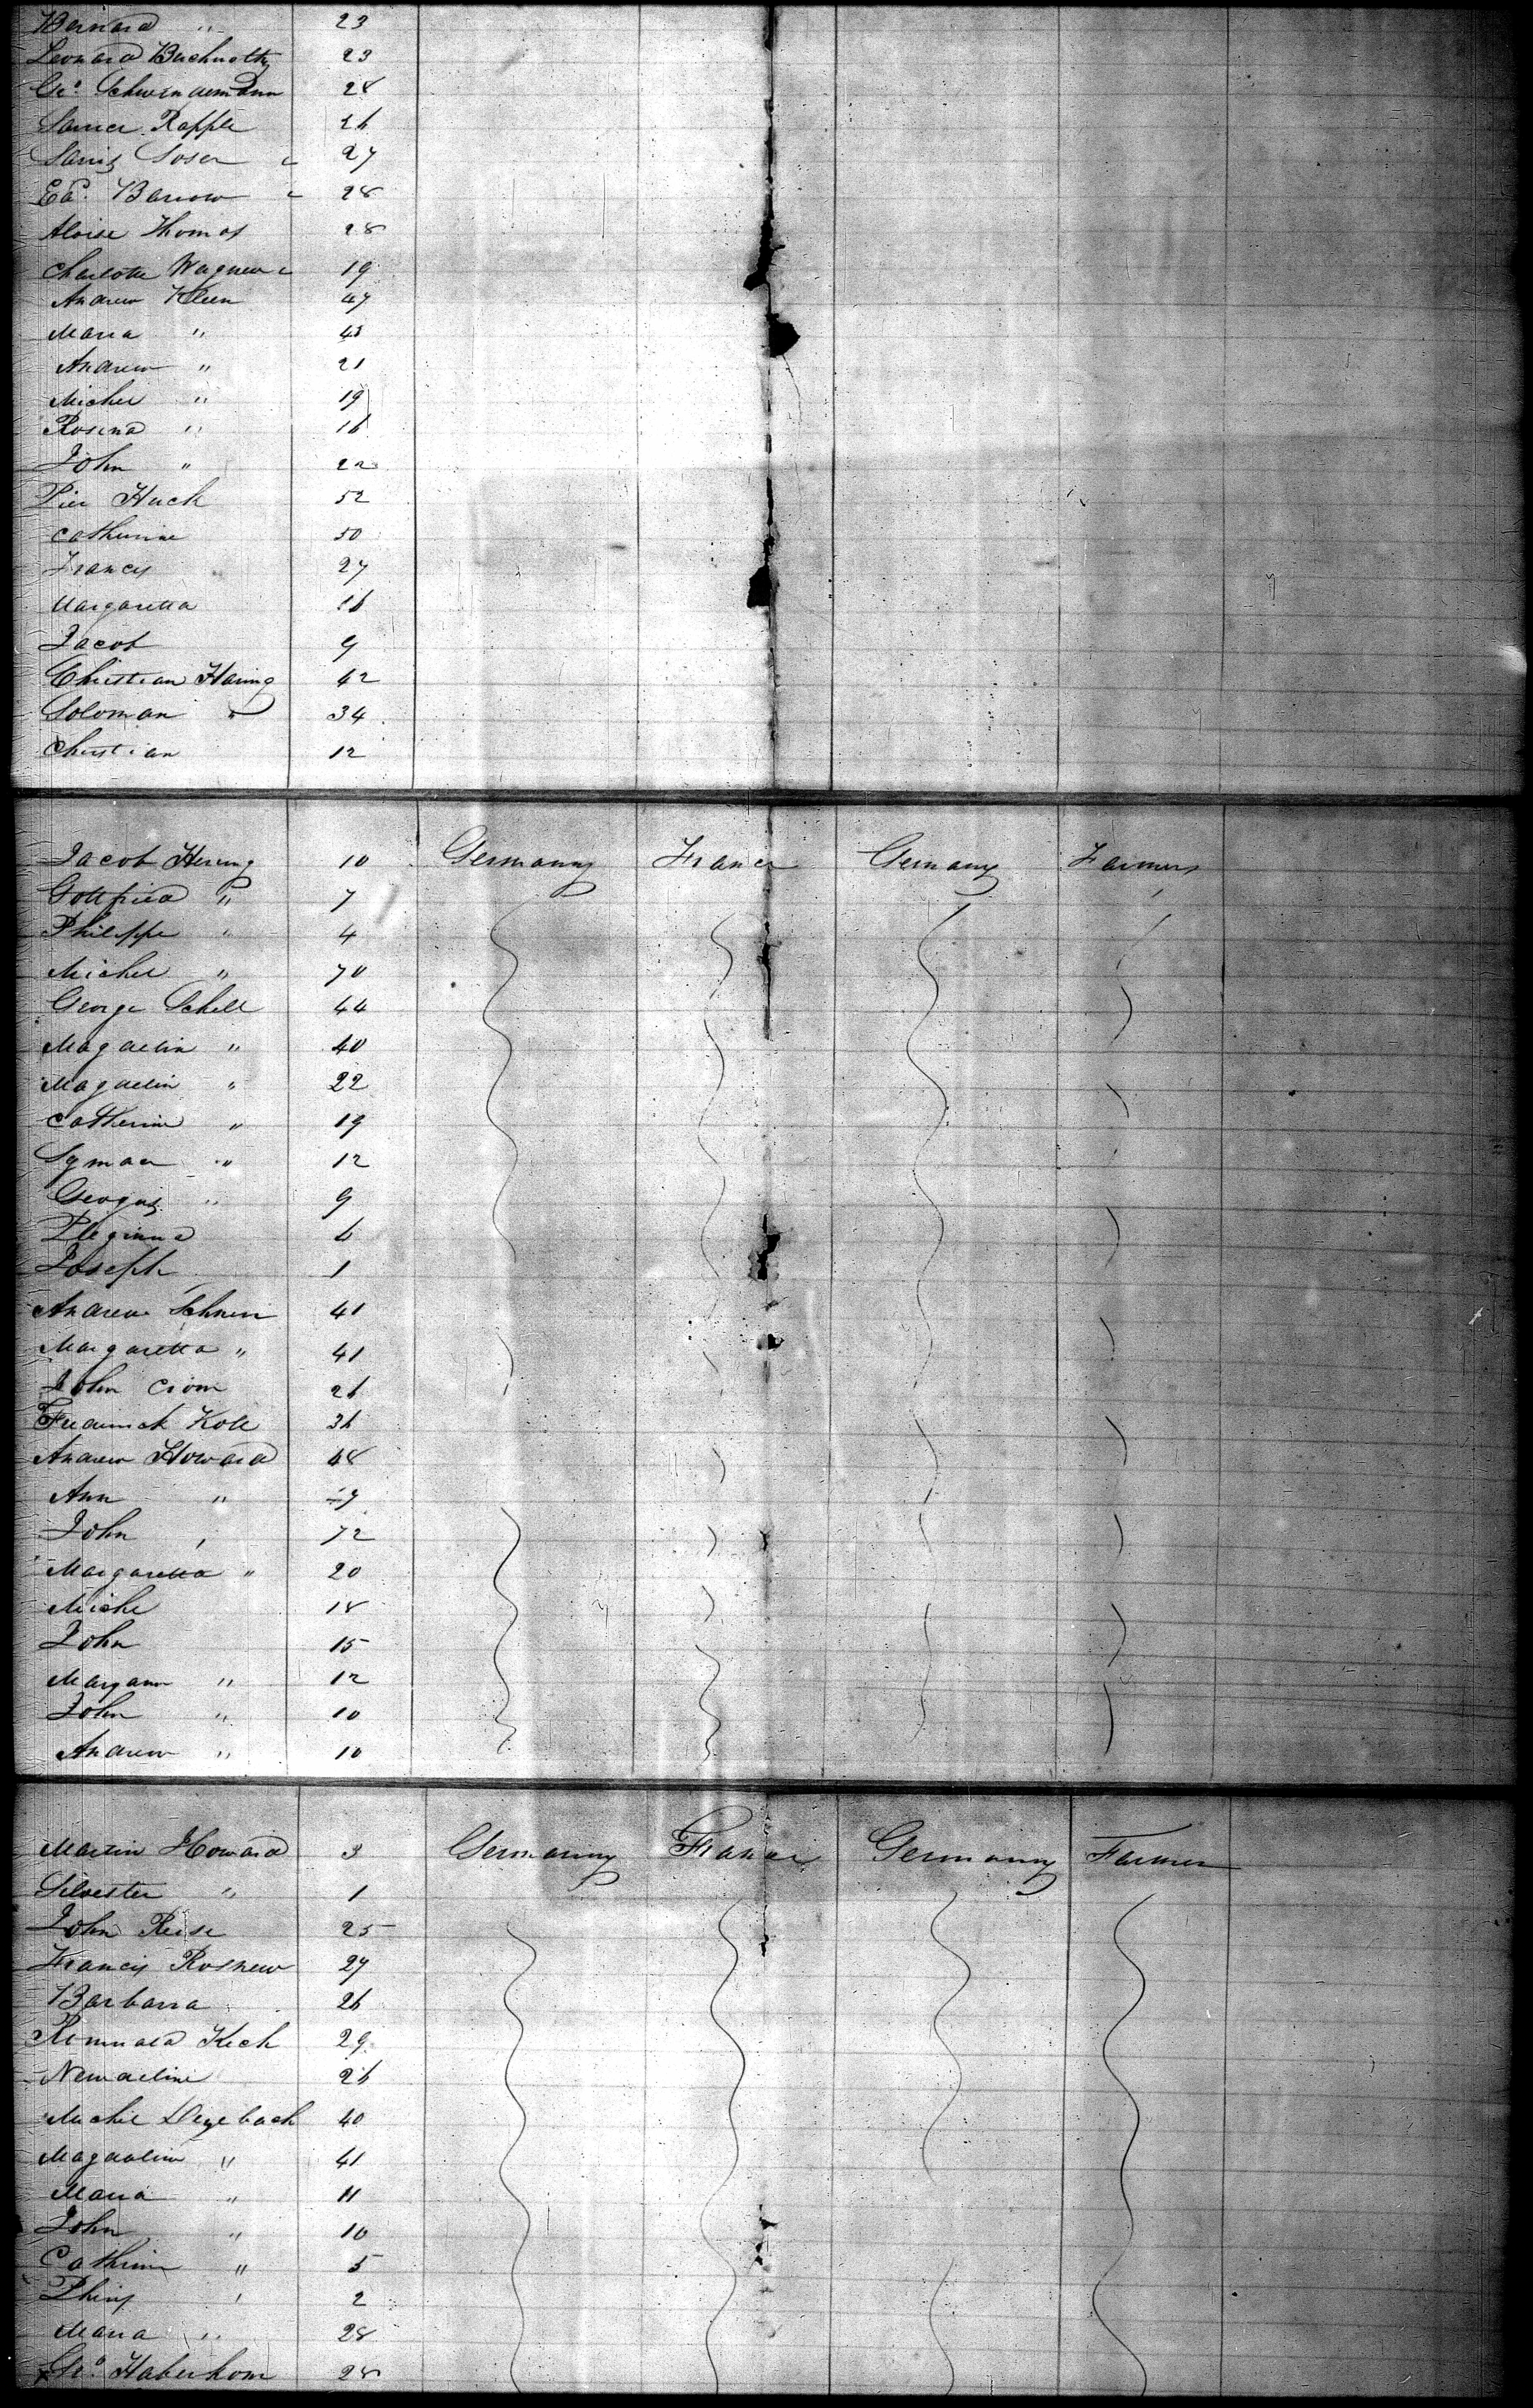 Bernard " 23
Leonard Buchnolty 23
Geo. Schwendemann 28
Rapple 26
Loser " 27
Ed. Barrow " 28
Aloise Thomas 28
Charlotte Wagner " 19
Andrew Kleen 47
Maria " 43
Andrew " 21
Michel " 19
Rosina " 16
John " 22
Pier Huck 52
Catherine 50
Francis 27
Margaretta 16
Jacob 9
Christian Haring 42
Soloman " 34
Christian 12
Jacob Hering 10 Germany France Germany Farmers
Gottfried " 7
Philippe " 4
Michel " 70
George Schell 44
Magdelin " 40
Magdelin " 22
Catherine " 19
" 12
" 9
6
Joseph 1
Andrew 41
Margaretta " 41
John 26
Frederick Kole 36
Andrew Howard 48
Ann "
John " 72
Margaretta " 20
Miche 18
John 15
Maryann " 12
John " 10
Andrew " 10
Martin Howard 3 Germany France Germany Farmer
Silvester " 1
John Reise 25
Francis Rosnew 27
Barbarra 26
Kech 29
26
Michel Degebach 40
Magdalin " 41
Maria " 11
John " 10
Cathrine " 5
" 2
Maria " 28
Geo. Haberkorn 28